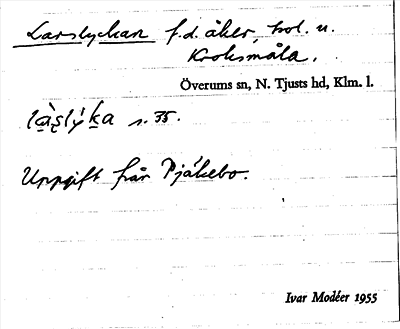 Larslyckan f.d. åker, hol. u.
Kroksmåla.
Överums sn, N. Tjusts hd, Klm. l.
s. 35.
Uppgift från Pjäkebo.
Ivar Modéer 1955